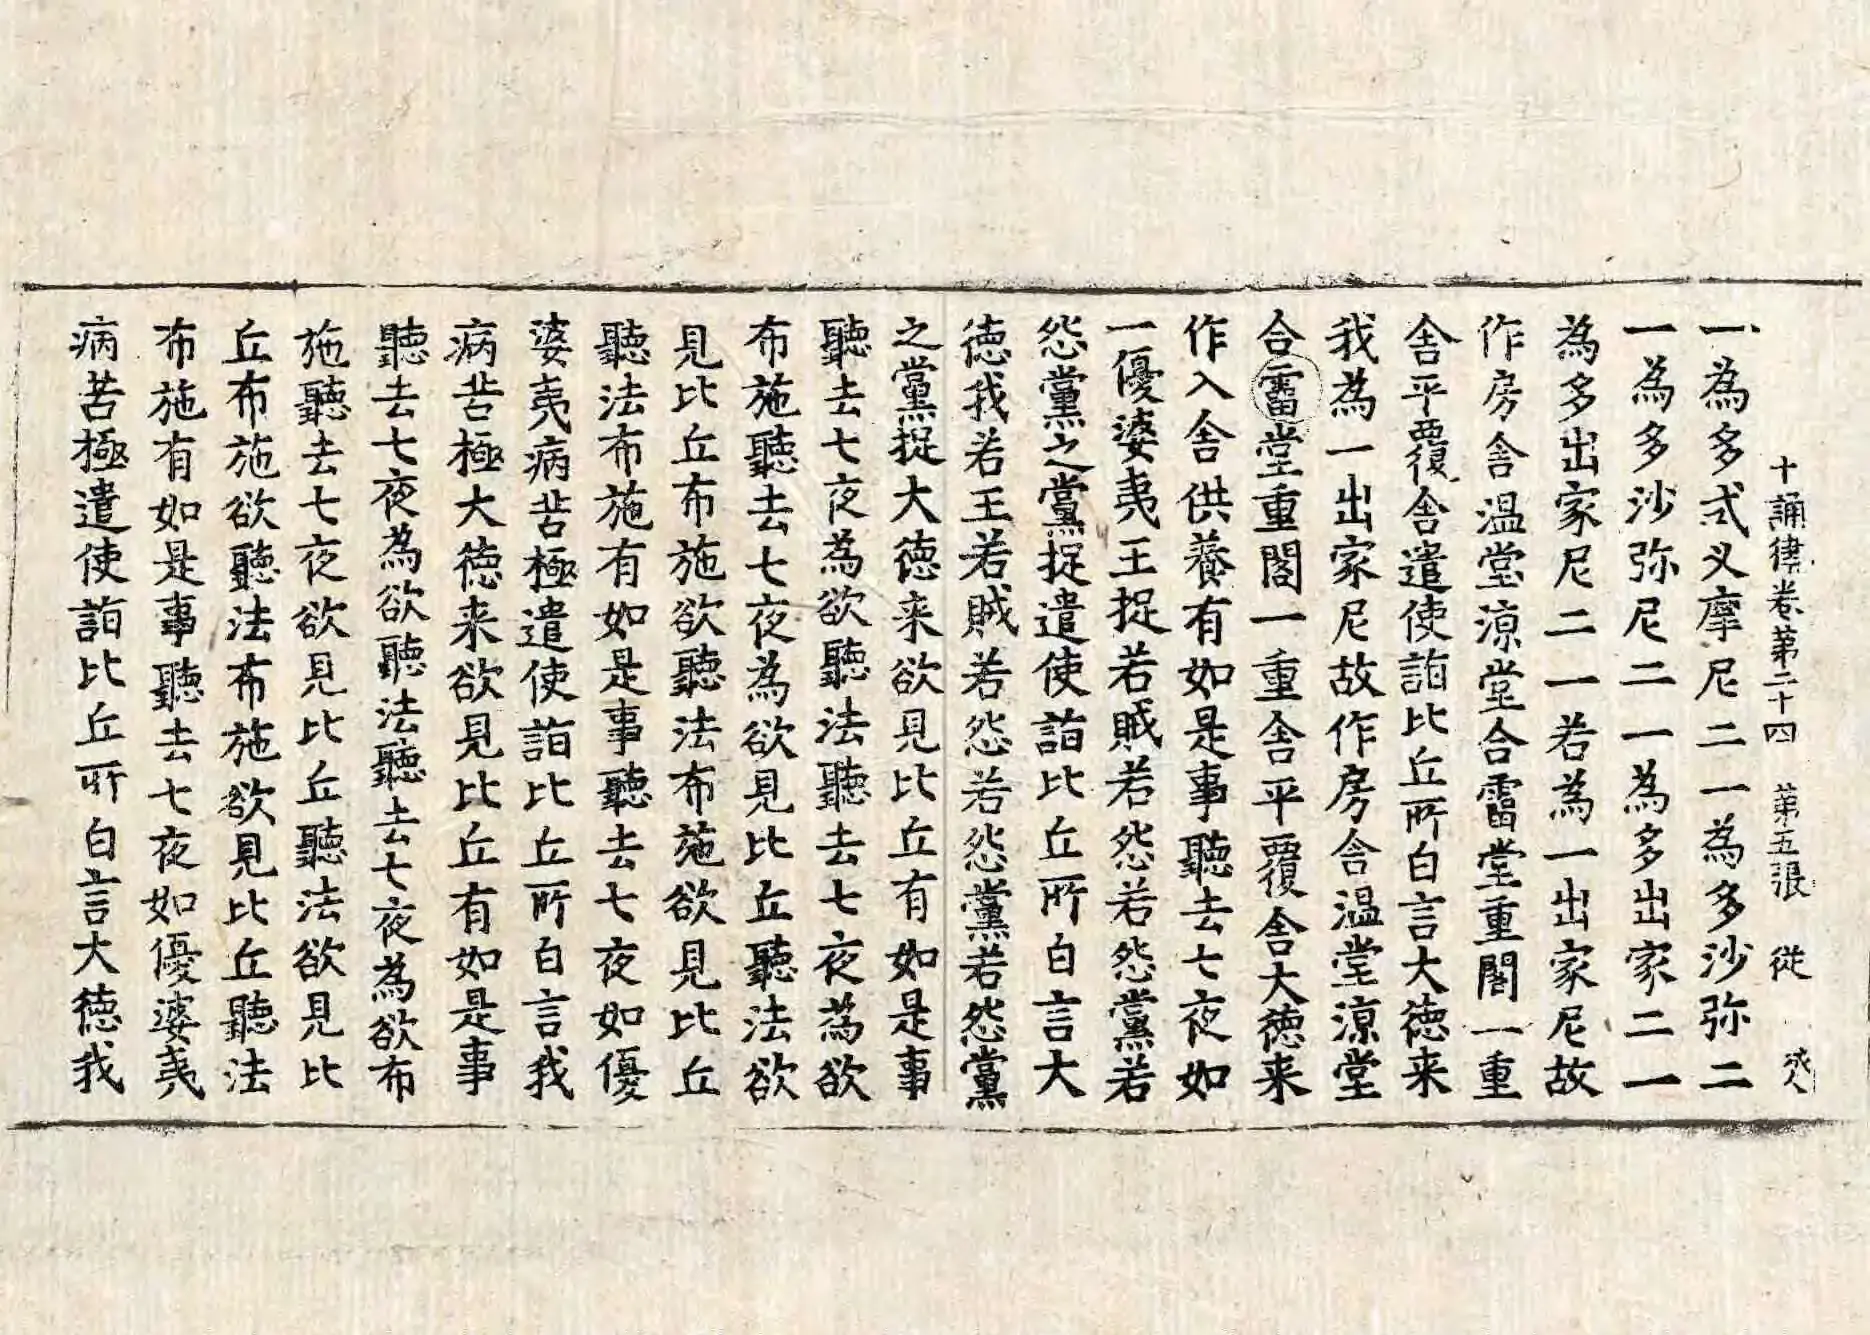 十誦律卷第二十四 第五張 從
一為多式叉摩尼二一為多沙弥二
一為多沙弥尼二一為多出家二一
為多出家尼二一若為一出家尼故
作房舍温堂涼堂合霤堂重閣一重
舍平覆舍遣使詣比丘所白言大徳来
我為一出家尼故作房舍温堂涼堂
合霤堂重閣一重舍平覆舍大徳来
作入舍供養有如是事聽去七夜如
一優婆夷王捉若賊若怨若怨黨若
怨黨之黨捉遣使詣比丘所白言大
徳我若王若賊若怨若怨黨若怨黨
之黨捉大徳来欲見比丘有如是事
聽去七夜為欲聽法聽去七夜為欲
布施聽去七夜為欲見比丘聽法欲
見比丘布施欲聽法布施欲見比丘
聽法布施有如是事聽去七夜如優
婆夷病苦極遣使詣比丘所白言我
病苦極大徳来欲見比丘有如是事
聽去七夜為欲聽法聽去七夜為欲布
施聽去七夜欲見比丘聽法欲見比
丘布施欲聽法布施欲見比丘聽法
布施有如是事聽去七夜如優婆夷
病苦極遣使詣比丘所白言大徳我